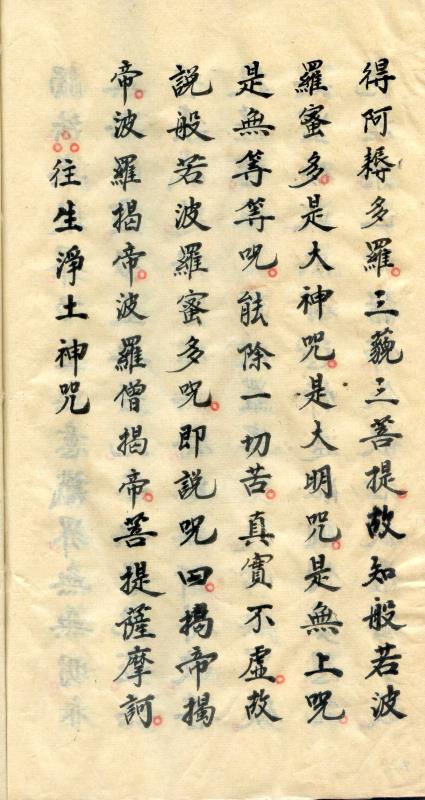 得阿耨多羅。三藐三菩提。故知般若波
羅蜜多。是大神咒。是大明咒。是無上咒。
是無等等咒。能除一切苦。真實不虛。故
說般若波羅蜜多咒。即說咒曰。揭帝揭
帝。波羅揭帝。波羅僧揭帝。菩提薩摩訶。
往生淨土神咒